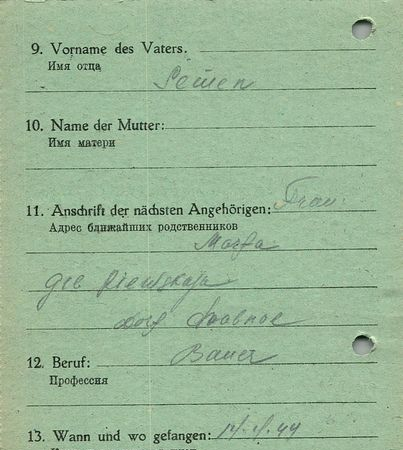 9. Vorname des Vaters.
Имя отца
Semen
10. Name der Mutter:
Имя матери
11. Anschrift der nächsten Angehörigen: Frau
Адрес ближайших родственников
Marfa
geb
Dorf
12. Beruf: Bauer
Профессия
13. Wann und wo gefangen: